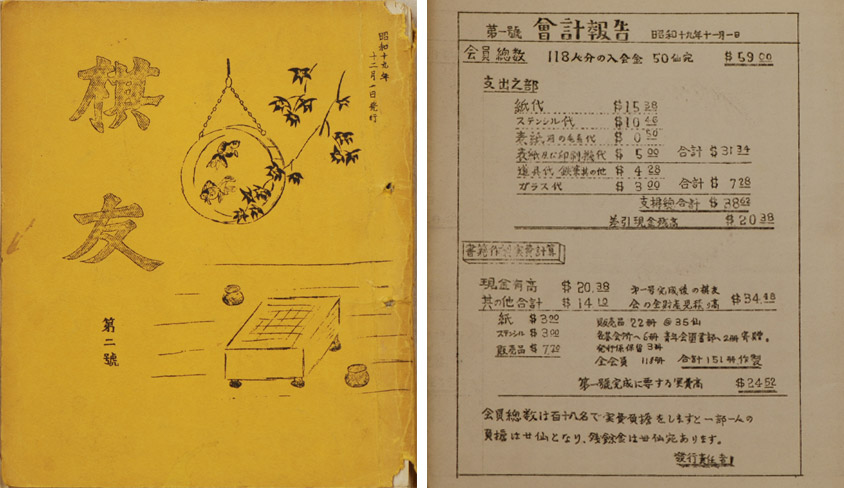 昭和十九年
十二月一日発行
棋友
第二號
第一號 會計報告 昭和十九年十一月一日
会員總数 118人分の入会金 50仙宛 $59.00
支出之部
紙代 $15.28
ステンシル代 $10
表紙 $0.50
表紙及び印刷機代 $5.00 合計 $31.34
道具代 鉄筆其の他 $4.28
ガラス代 $3.00 合計 $7.28
支拂總合計 $38
差引現金残高 $20.38
現金有高 $20.38 第一号完成後の棋友
其の他合計 $14.10 会の全財産見積り高 $34.48
紙 $3.00 販売品 22冊 @35仙
ステンシル $3.00 各碁会所へ6冊 青年会図書部へ2冊寄贈。
販売品 $7.70 発行係保留 3冊
全会員 118冊 合計151冊作製
第一號完成に要する実費高 $24.52
会員總数は百十八名で実費負擔をしますと一部一人の
負擔は廿仙となり、残餘金は廿仙宛あります。
発行責任者